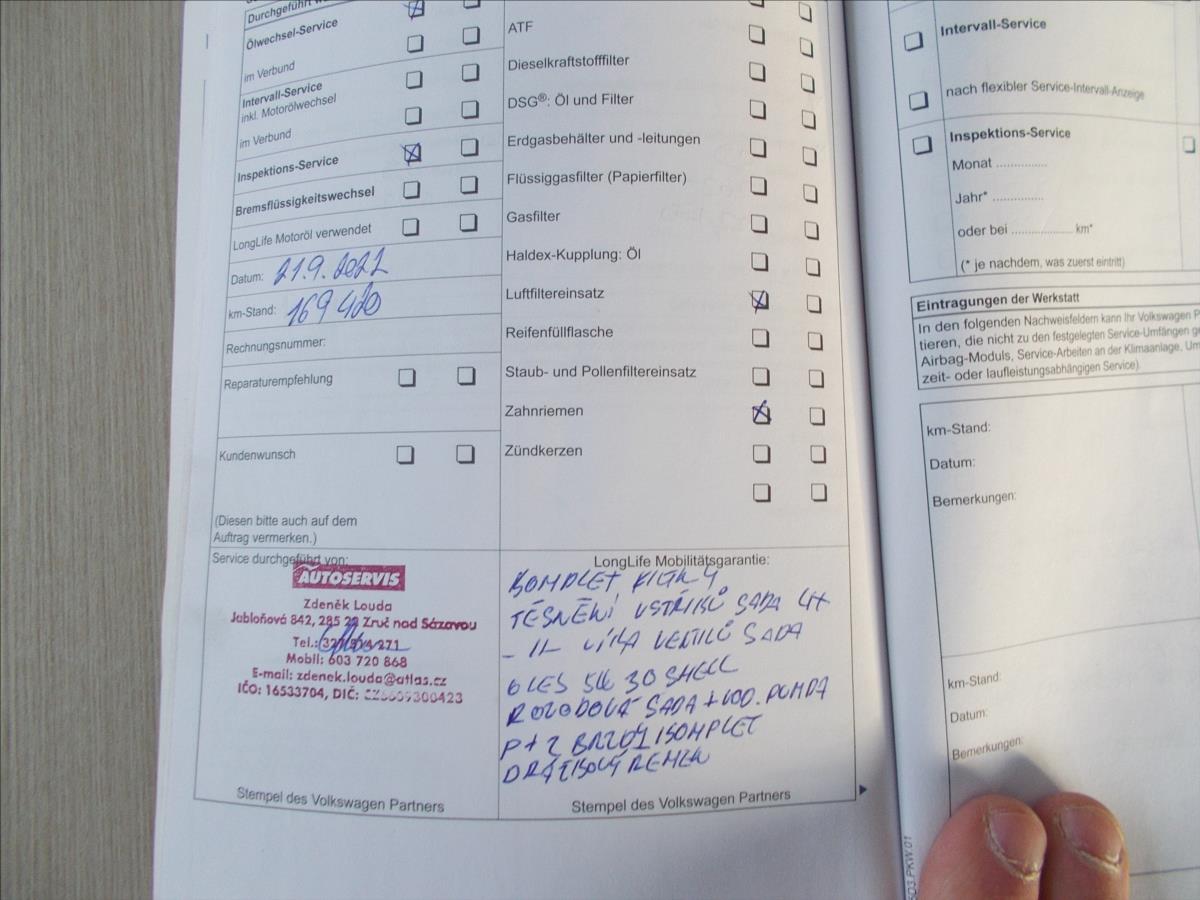 Durchgeführt
Ölwechsel-Service
im Verbund
Intervall-Service
inkl. Motorölwechsel
im Verbund
Inspektions-Service
Bremsflüssigkeitswechsel
LongLife Motoröl verwendet
Datum: 21.9.2021
km-Stand: 169 480
Rechnungsnummer:
Reparaturempfehlung
Kundenwunsch
(Diesen bitte auch auf dem
Auftrag vermerken.)
Service durchgeführt von:
AUTOSERVIS
Zdeněk Louda
Jabloňová 842, 285 22 Zruč nad Sázavou
Tel.:
Mobil: 603 720 868
E-mail: zdenek.louda@atlas.cz
IČO: 16533704, DIČ: CZ6609300423
Stempel des Volkswagen Partners
ATF
Dieselkraftstofffilter
DSG®: Öl und Filter
Erdgasbehälter und -leitungen
Flüssiggasfilter (Papierfilter)
Gasfilter
Haldex-Kupplung: Öl
Luftfiltereinsatz
Reifenfüllflasche
Staub- und Pollenfiltereinsatz
Zahnriemen
Zündkerzen
LongLife Mobilitätsgarantie:
KOMPLET FILTRY
TĚSNĚNÍ VSTŘIKŮ SADA 4x
- 11 - VÍKA VENTILŮ SADA
OLEJ 5W 30 SHELL
ROZVODOVÁ SADA + VOD. PUMPA
P + Z BRZDY KOMPLET
DRÁŽKOVÝ ŘEMEN
Stempel des Volkswagen Partners
Intervall-Service
nach flexibler Service-Intervall-Anzeige
Inspektions-Service
Monat ..............
Jahr* ..............
oder bei ................. km*
(* je nachdem, was zuerst eintritt)
Eintragungen der Werkstatt
In den folgenden Nachweisfeldern kann Ihr Volkswagen P
tieren, die nicht zu den festgelegten Service-Umfängen
Airbag-Moduls, Service-Arbeiten an der Klimaanlage, Um
zeit- oder laufleistungsabhängigen Service).
km-Stand:
Datum:
Bemerkungen:
km-Stand:
Datum:
Bemerkungen: